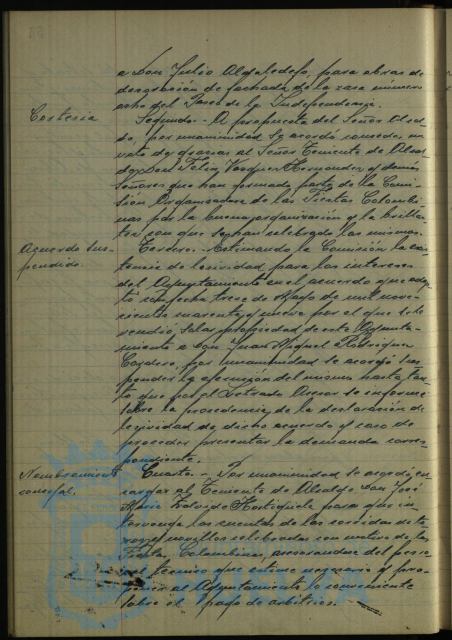 a Don Julio , para obras de
decoración de fachada de la casa número
ocho del Paseo de la Independencia.
Cortesía
Segundo.- A propuesta del Señor Alcal-
de, por unanimidad se acordó conceder un
voto de gracias al Señor Teniente de Alcal-
de, Don Félix Vazquez Hernandez y demás
señores que han formado parte de la Comi-
sión Organizadora de las Fiestas Colombi-
nas por la buena organización y la brillan-
tez con que se han celebrado las mismas.
Acuerdo sus-
pendido.
Tercero.- Estimando la Comisión la exis-
tencia de lesividad para los intereses
del Ayuntamiento en el acuerdo que adop-
tó con fecha trece de Mayo de mil nove-
cientos cuarenta y nueve por el que se le
vendió solar propiedad de este Ayunta-
miento a Don Juan Miguel Rodriguez
Cordero, por unanimidad se acordó sus-
pender la ejecución del mismo hasta tan-
to que por el Letrado Asesor se informe
sobre la procedencia de la declaración de
lesividad de dicho acuerdo y caso de
proceder presentar la demanda corres-
pondiente.
Nombramiento
concejal.
Cuarto.- Por unanimidad se acordó en-
cargar al Teniente de Alcalde Don José
María para que in-
tervenga las cuentas de las corridas de to-
ros y novillos celebradas con motivo de las
Fiestas Colombinas, asesorandose del perso-
nal técnico que estime necesario y pro-
poner al Ayuntamiento lo conveniente
sobre el pago de arbitrios.